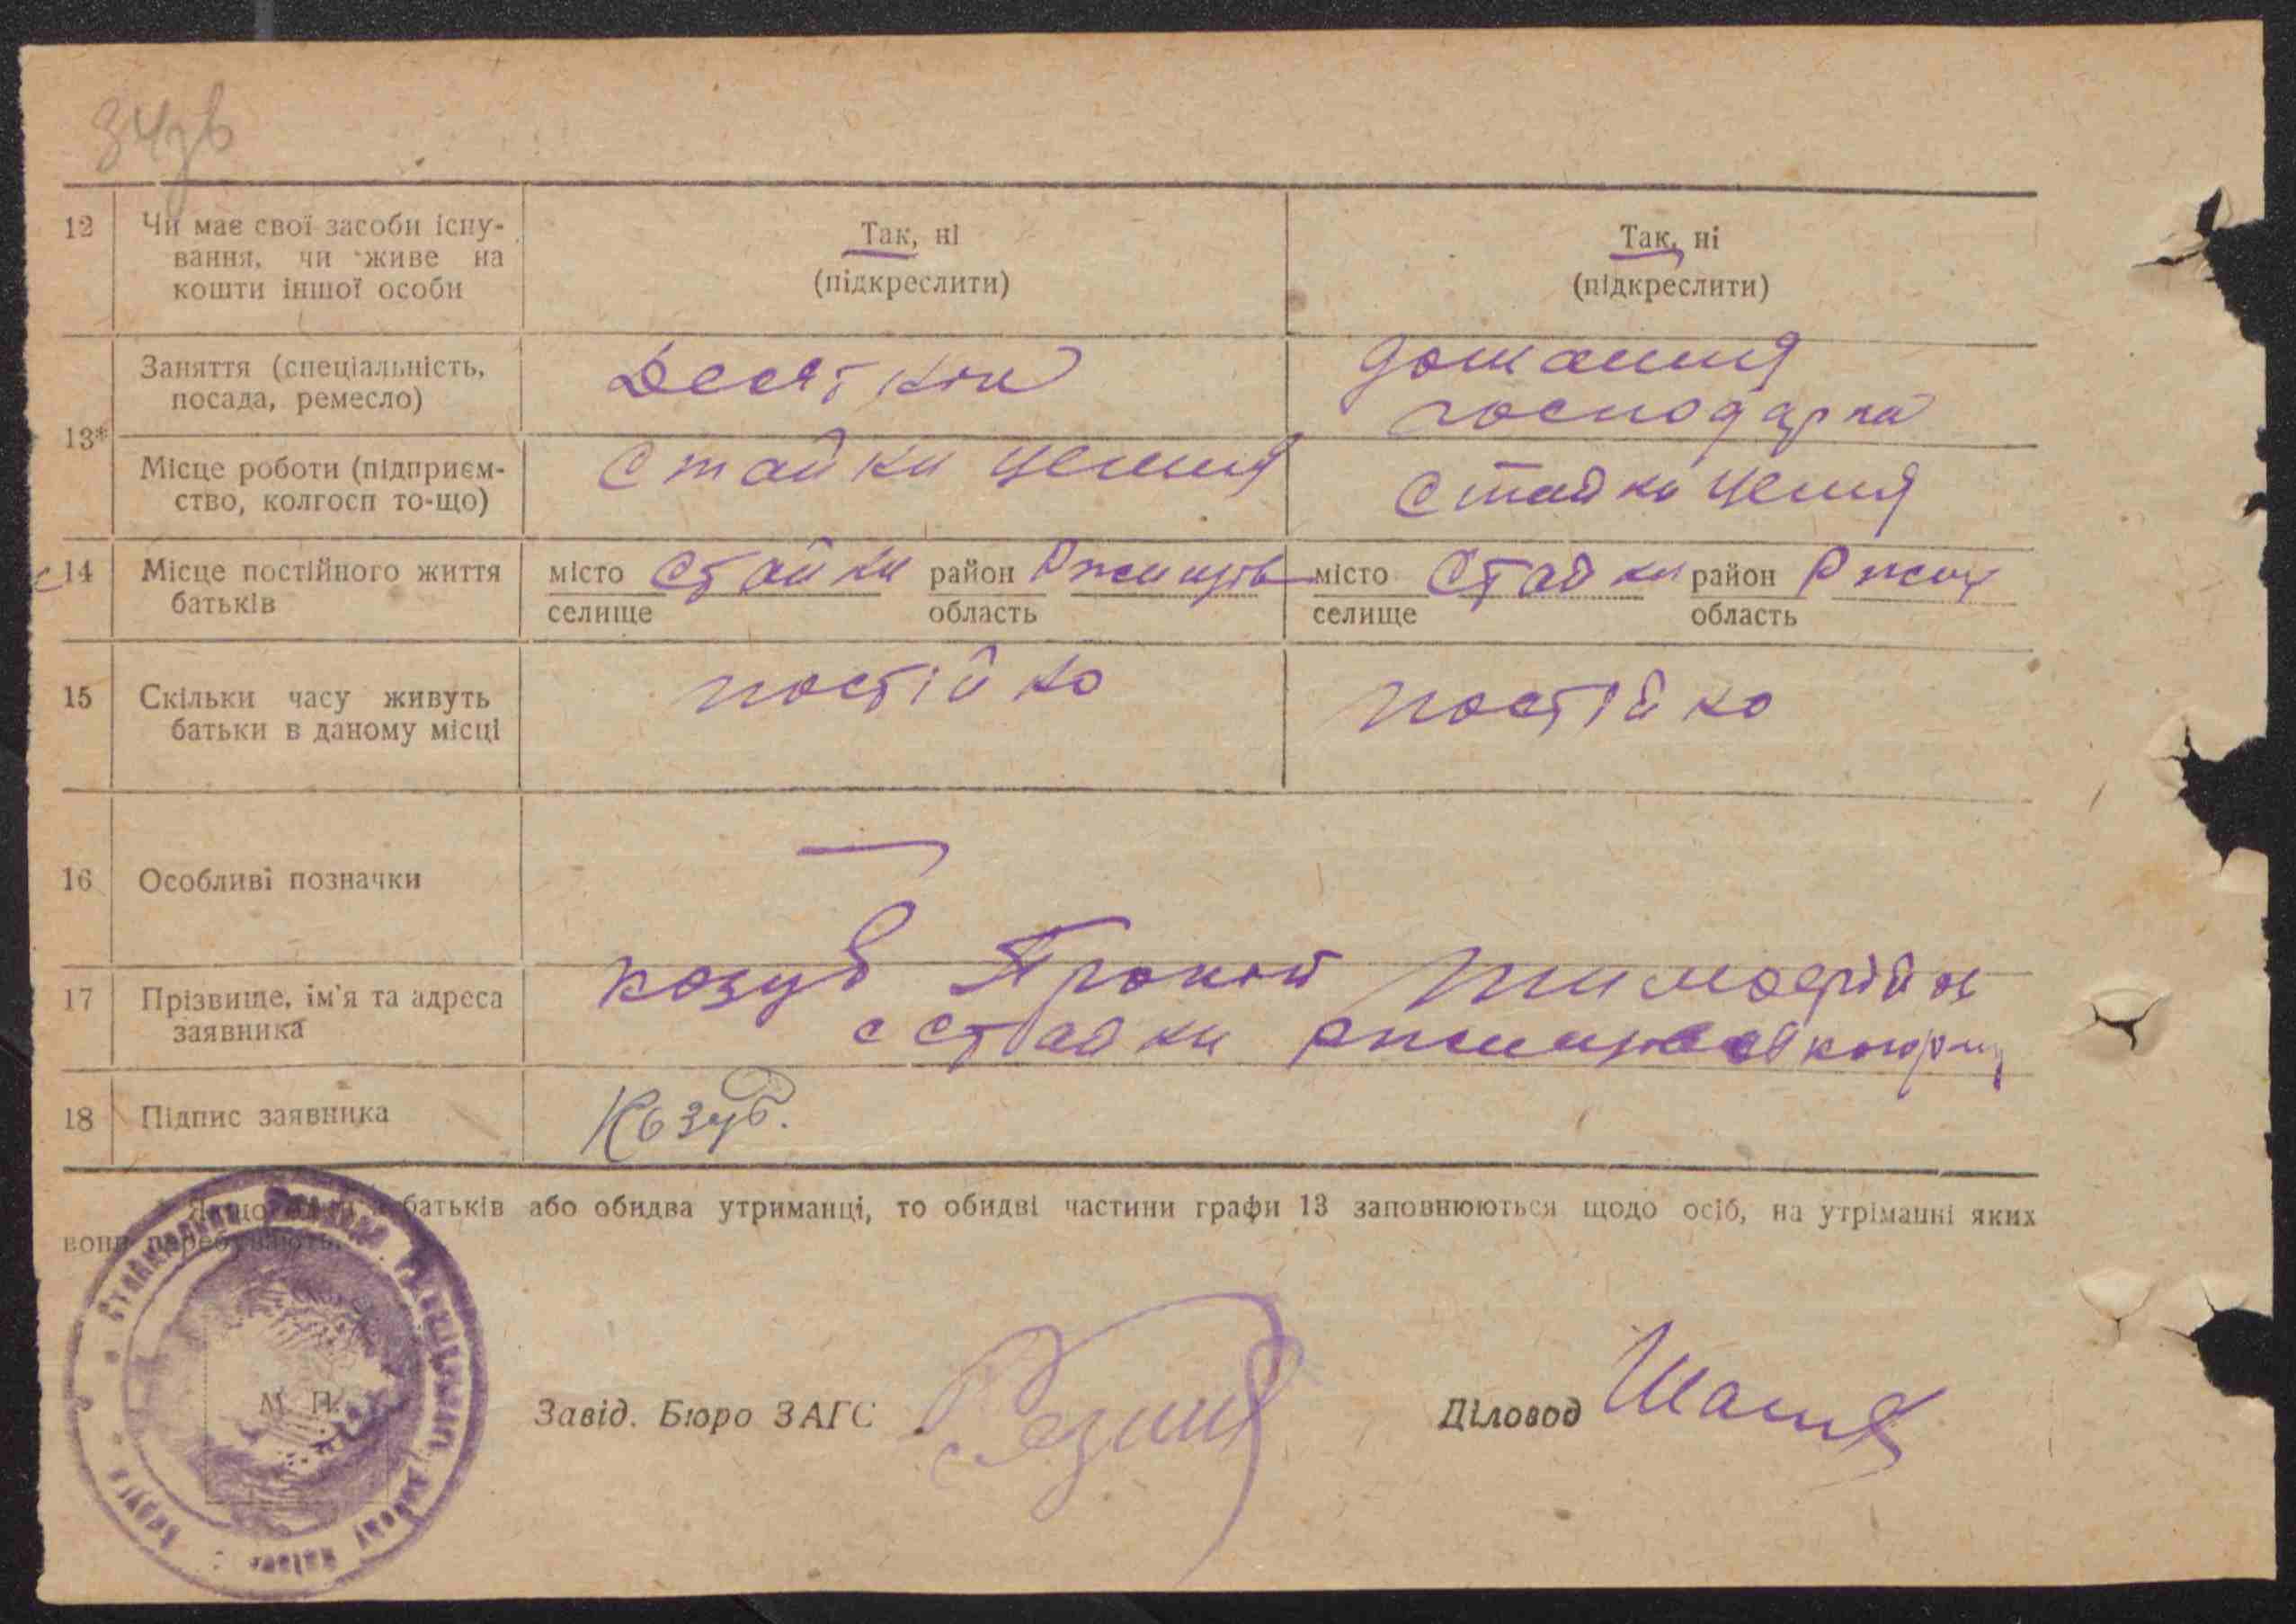 34зв
12 Чи має свої засоби існу-
вання, чи живе на
кошти іншої особи
Так, ні
(підкреслити)
Так, ні
(підкреслити)
13*
Заняття (спеціальність,
посада, ремесло)
Десят
домашня
господарка
Місце роботи (підприєм-
ство, колгосп то-що)
Стайки
Стайки
14 Місце постійного життя
батьків
місто Стайки район Ржищів
селище область
місто Стайки район Ржищ
селище область
15 Скільки часу живуть
батьки в даному місці
постійко
постійко
16 Особливі позначки
17 Прізвище, ім'я та адреса
заявника
козуб Прокіп
с Стайки
18 Підпис заявника
Козуб.
батьків або обидва утриманці, то обидві частини графи 13 заповнюються щодо осіб, на утріманні яких
вони перебувають.
М. П.
Завід. Бюро ЗАГС
Діловод